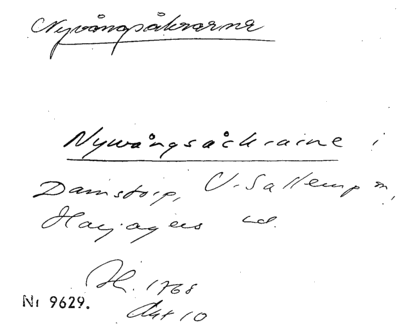 Nyvångsåkrarne
Nywångsåckraine i
Damstorp, V. Sallerup sn,
Harjagers hd.
H. 1768
Akt 10
Nr 9629.